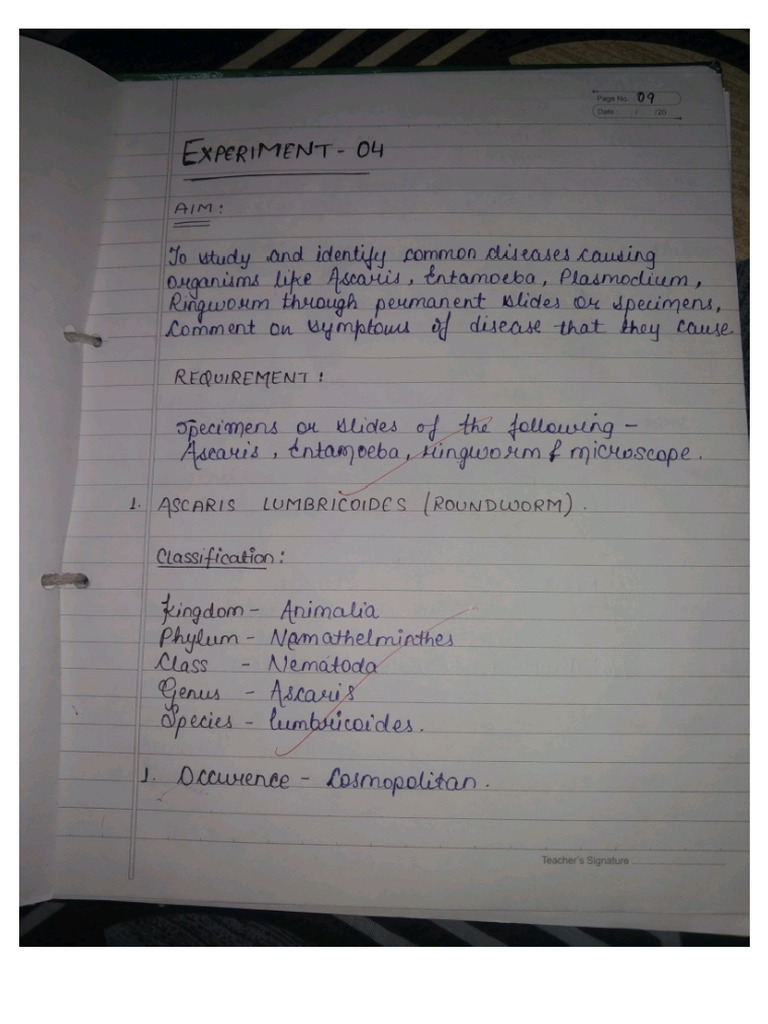 Page No. 09
Date / /20
EXPERIMENT - 04
AIM:
To study and identify common diseases causing
organisms like Ascaris, Entamoeba, Plasmodium,
Ringworm through permanent slides or specimens,
Comment on symptoms of disease that they cause
REQUIREMENT:
Specimens or slides of the following -
Ascaris, Entamoeba, ringworm & microscope.
1. ASCARIS LUMBRICOIDES (ROUNDWORM).
Classification:
Kingdom - Animalia
Phylum - Namathelminthes
Class - Nematoda
Genus - Ascaris
Species - lumbricoides.
1. Occurence - Cosmopolitan.
Teacher's Signature